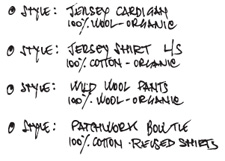 STYLE: JERSEY CARDIGAN
100% WOOL - ORGANIC
STYLE: JERSEY SHIRT L/S
100% COTTON - ORGANIC
STYLE: WILD WOOL PANTS
100% WOOL - ORGANIC
STYLE: PATCHWORK BOWTIE
100% COTTON - REUSED SHIRTS